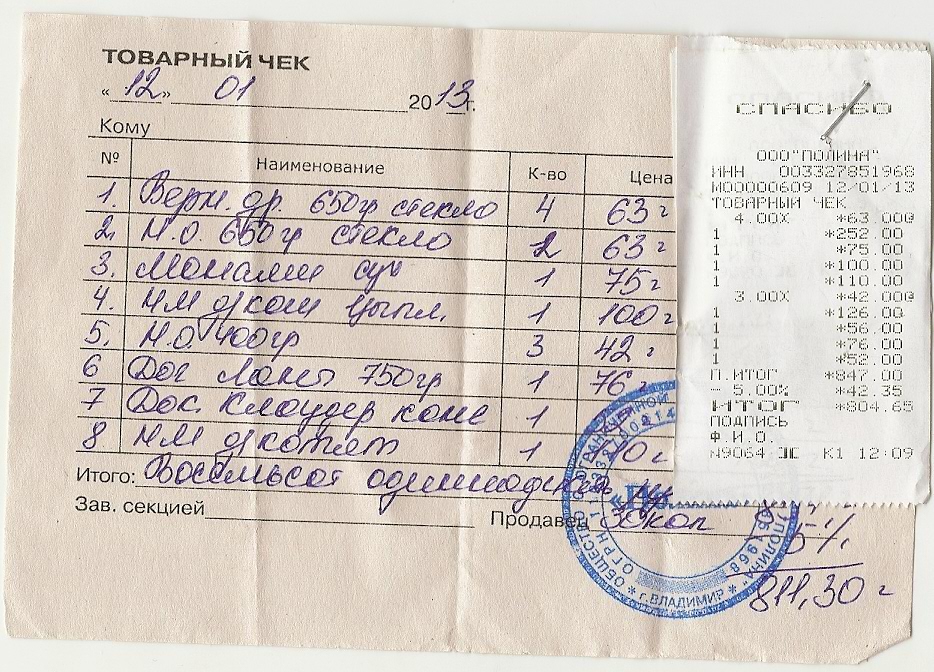 ТОВАРНЫЙ ЧЕК
« 12 » 01 2013 г.
Кому
№ Наименование К-во Цена
1. Верн. др. 650гр стекло 4 63
2. Н.О. 650гр стекло 2 63
3. 1 75
4. НМ 1 100
5. Н.О. 400гр 3 42
6 Дос 750гр 1 76
7 Дос. 1
8 НМ 1 110
Итого: Восемьсот одиннадцать
Зав. секцией Продавец
5%
811,30
ОБЩЕСТВО С ОГРАНИЧЕННОЙ
"ПОЛИНА" * г.ВЛАДИМИР * ОГРН
СПАСИБО
ООО"ПОЛИНА"
ИНН 003327851968
М00000609 12/01/13
ТОВАРНЫЙ ЧЕК
4.00X *63.00@
1 *252.00
1 *75.00
1 *100.00
1 *110.00
3.00X *42.00@
1 *126.00
1 *56.00
1 *76.00
1 *52.00
П.ИТОГ *847.00
- 5.00% *42.35
ИТОГ *804.65
ПОДПИСЬ
Ф.И.О.
N9064 К1 12-09